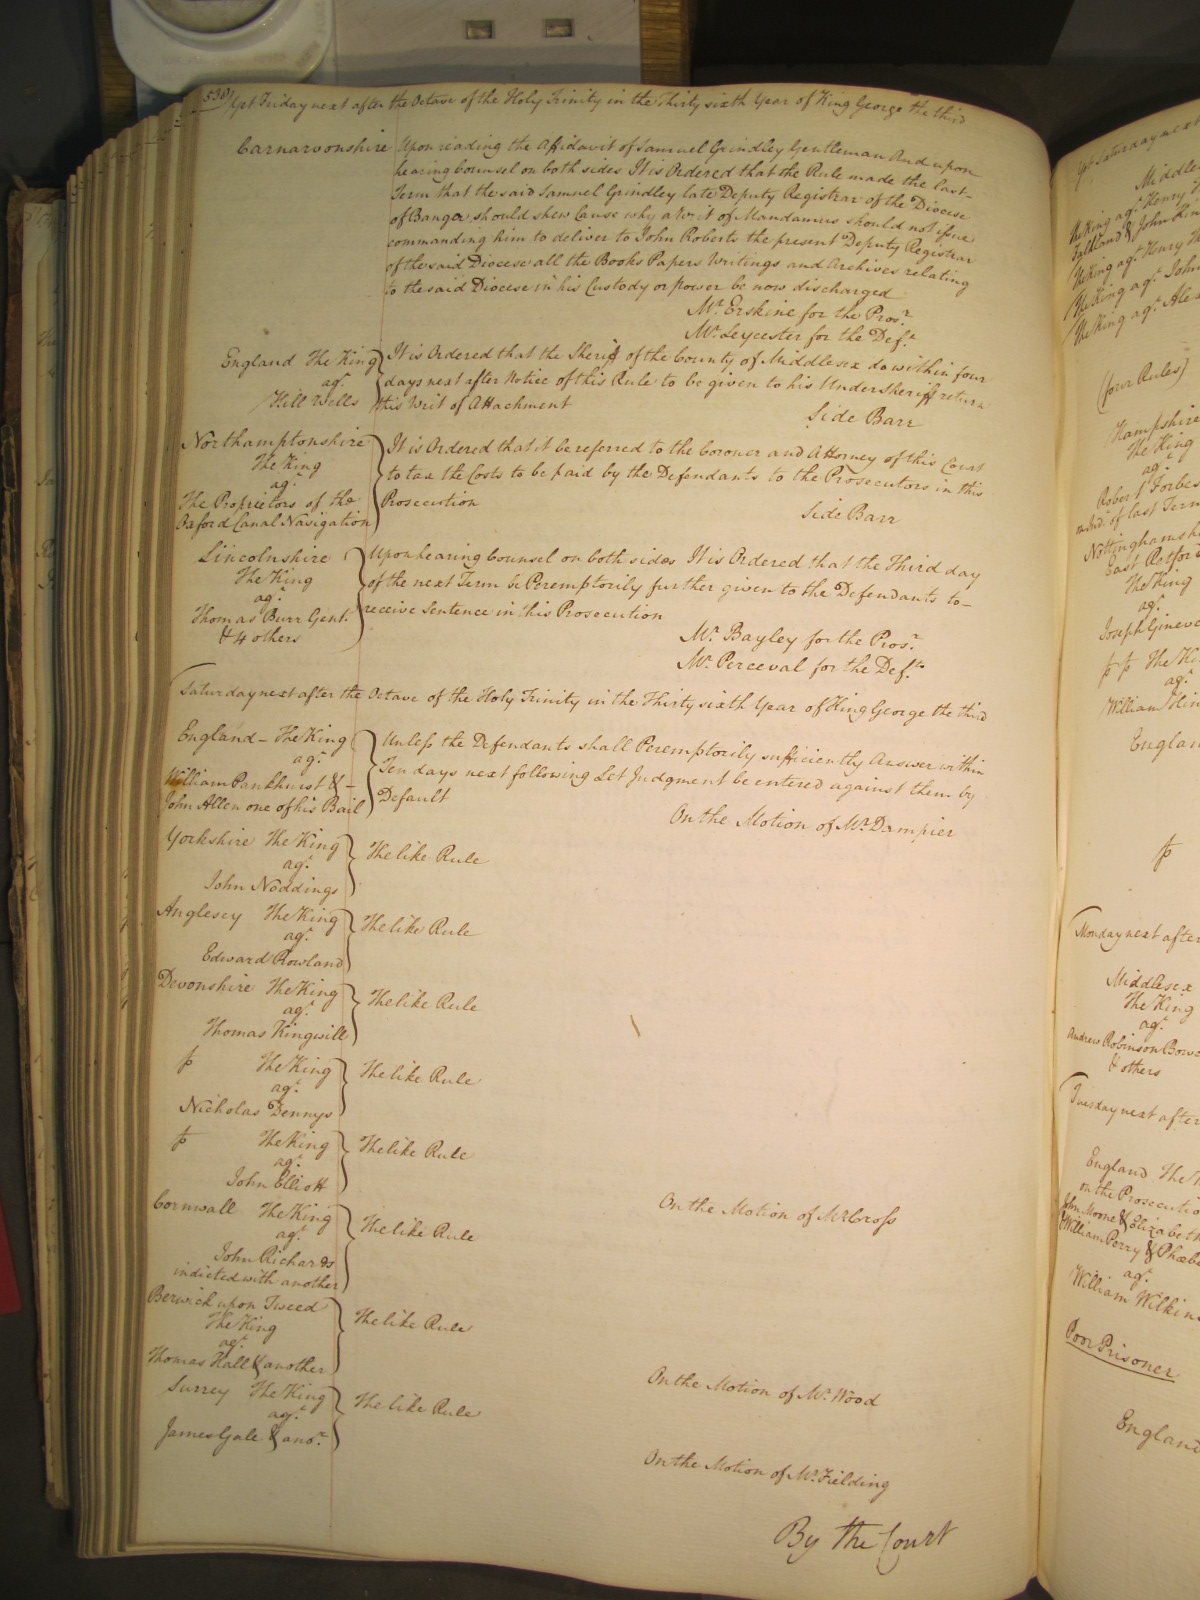 538
Yet Friday next after the Octave of the Holy Trinity in the Thirty sixth Year of King George the third
Carnarvonshire Upon reading the Affidavit of Samuel Grindley Gentleman And upon
hearing Counsel on both sides It is Ordered that the Rule made the last
Term that the said Samuel Grindley late Deputy Registrar of the Diocese
of Bangor should shew Cause why a Writ of Mandamus should not issue
commanding him to deliver to John Roberts the present Deputy Registrar
of the said Diocese all the Books Papers Writings and Archives relating
to the said Diocese in his Custody or power be now discharged
Mr. Erskine for the Prosr.
Mr. Leycester for the Deft.
England The King
agt.
Hill Wells
It is Ordered that the Sheriff of the County of Middlesex do within four
days next after Notice of this Rule to be given to his Undersheriff return
this Writ of Attachment
Side Barr
Northamptonshire
The King
agt.
The Proprietors of the
Oxford Canal Navigation
It is Ordered that it be referred to the Coroner and Attorney of this Court
to tax the Costs to be paid by the Defendants to the Prosecutors in this
Prosecution
Side Barr
Lincolnshire
The King
agt.
Thomas Burr Gent.
& 4 others
Upon hearing Counsel on both sides It is Ordered that the Third day
of the next Term be Peremptorily further given to the Defendants to
receive Sentence in this Prosecution
Mr. Bayley for the Prosr.
Mr. Perceval for the Defts.
Saturday next after the Octave of the Holy Trinity in the Thirty sixth Year of King George the third
England - The King
agt.
William Pankhurst & -
John Allen one of his Bail
Unless the Defendants shall Peremptorily sufficiently Answer within
Ten days next following Let Judgment be entered against them by
Default
On the Motion of Mr. Dampier
Yorkshire The King
agt.
John Noddings
The like Rule
Anglesey The King
agt.
Edward Rowland
The like Rule
Devonshire The King
agt.
Thomas Kingwill
The like Rule
The King
agt.
Nicholas Dennys
The like Rule
The King
agt.
John Elliott
The like Rule
Cornwall The King
agt.
John Richards
indicted with another
The like Rule
On the Motion of Mr. Cross
Berwick upon Tweed
The King
agt.
Thomas Hall & another
The like Rule
On the Motion of Mr. Wood
Surrey The King
agt.
James Gale & anor.
The like Rule
On the Motion of Mr. Fielding
By the Court
Yet Saturday next
The King agt. Henry
Falkland & John
The King agt. Henry
The King agt. John
The King agt.
(four Rules)
Hampshire
The King
agt.
Robert Forbes
of last Term
East Retford
The King
agt.
Joseph
agt.
Englan
Monday next after
Middlesex
The King
agt.
Andrew Robinson
& others
Tuesday next after
England
on the Prosecution
John Moore & Elizabeth
William Perry & Phoebe
agt.
William
Poor Prisoner
England